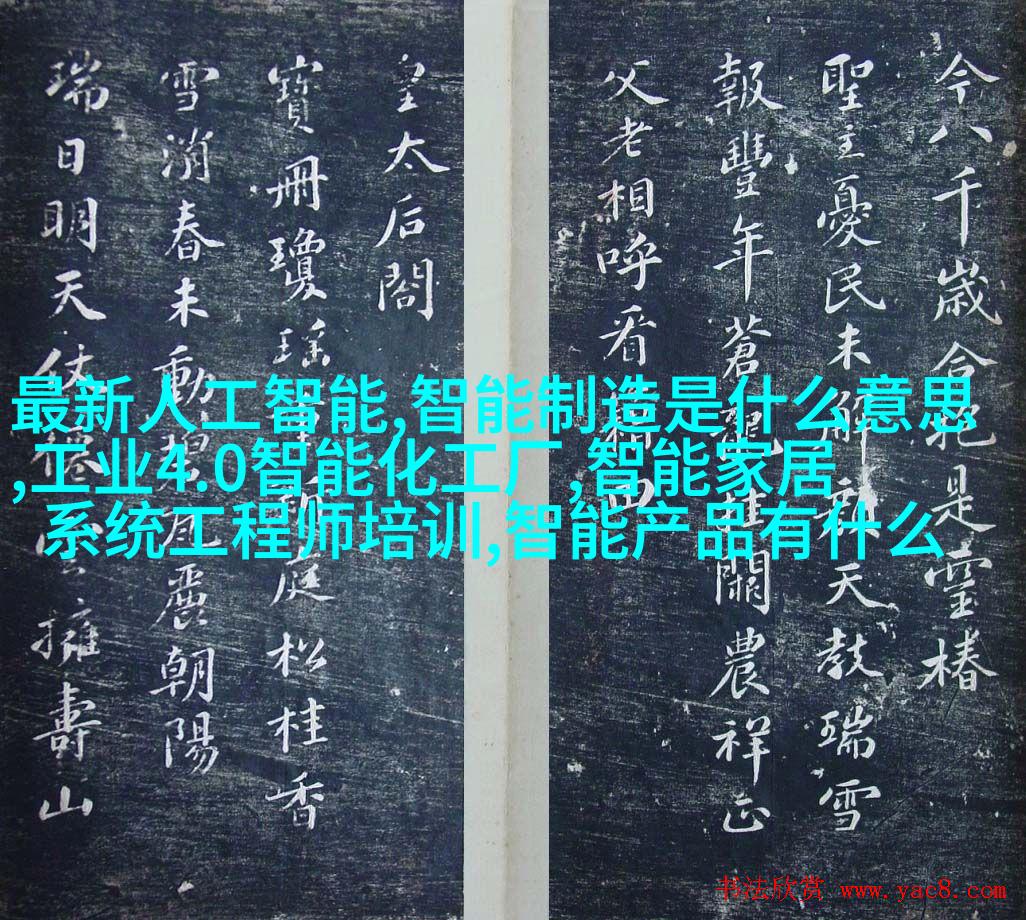 今八千歳合抱是靈椿
聖主憂民未解顏天教瑞雪
報豐年蒼龍挂闕農祥正
父老相呼看耤田
皇太后閤
寶冊瓊瑤重新庭松桂香
雪消春未動碧瓦麗朝陽
瑞日明天仗僊雲擁壽山
最新人工智能,智能制造是什么意思
,工业4.0智能化工厂,智能家居
系统工程师培训,智能产品有什么
书法欣赏 www.yac8.com